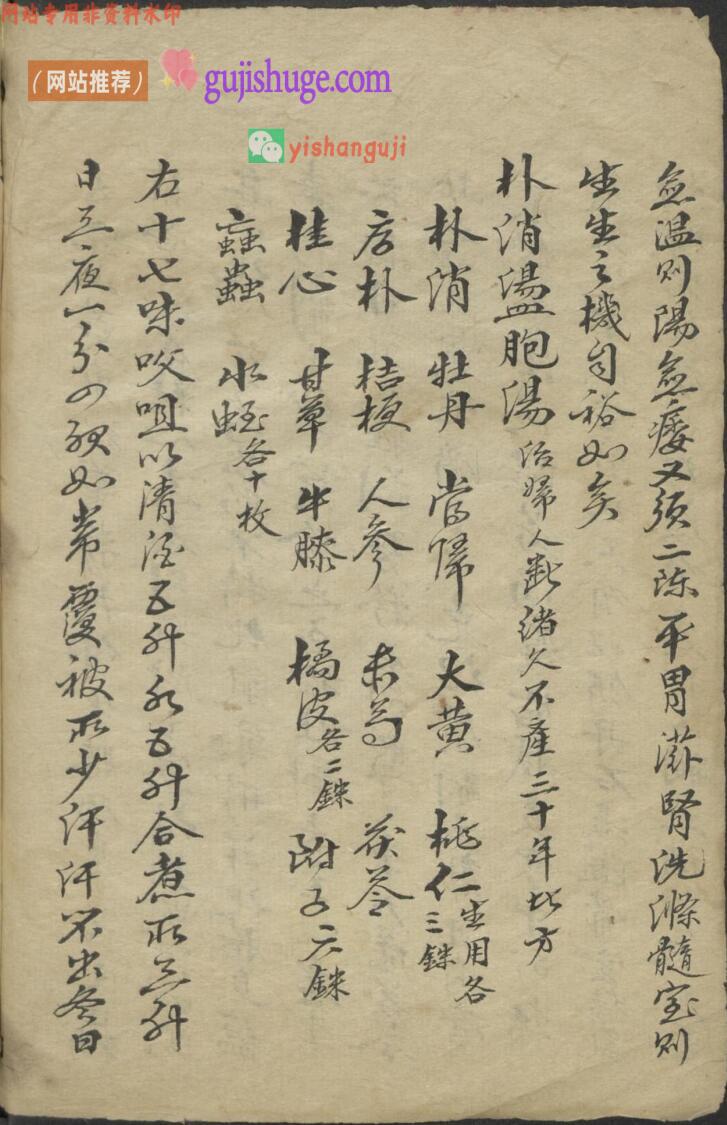 网站专用非资料水印
（网站推荐）
gujishuge.com
yishanguji
愈温则陽愈痿又须二陈平胃滋腎洗滌髓室则
生生之機自裕如矣
朴消盪胞湯 治婦人斷緒久不產三十年此方
朴消 牡丹 當歸 大黄 桃仁生用各三銖
厚朴 桔梗 人參 赤芍 茯苓
桂心 甘草 牛膝 橘皮各二銖 附子六銖
䖟蟲 水蛭各十枚
右十七味㕮咀以清酒五升水五升合煮取三升
日三夜一分四服如常覆被取少汗汗不出冬日